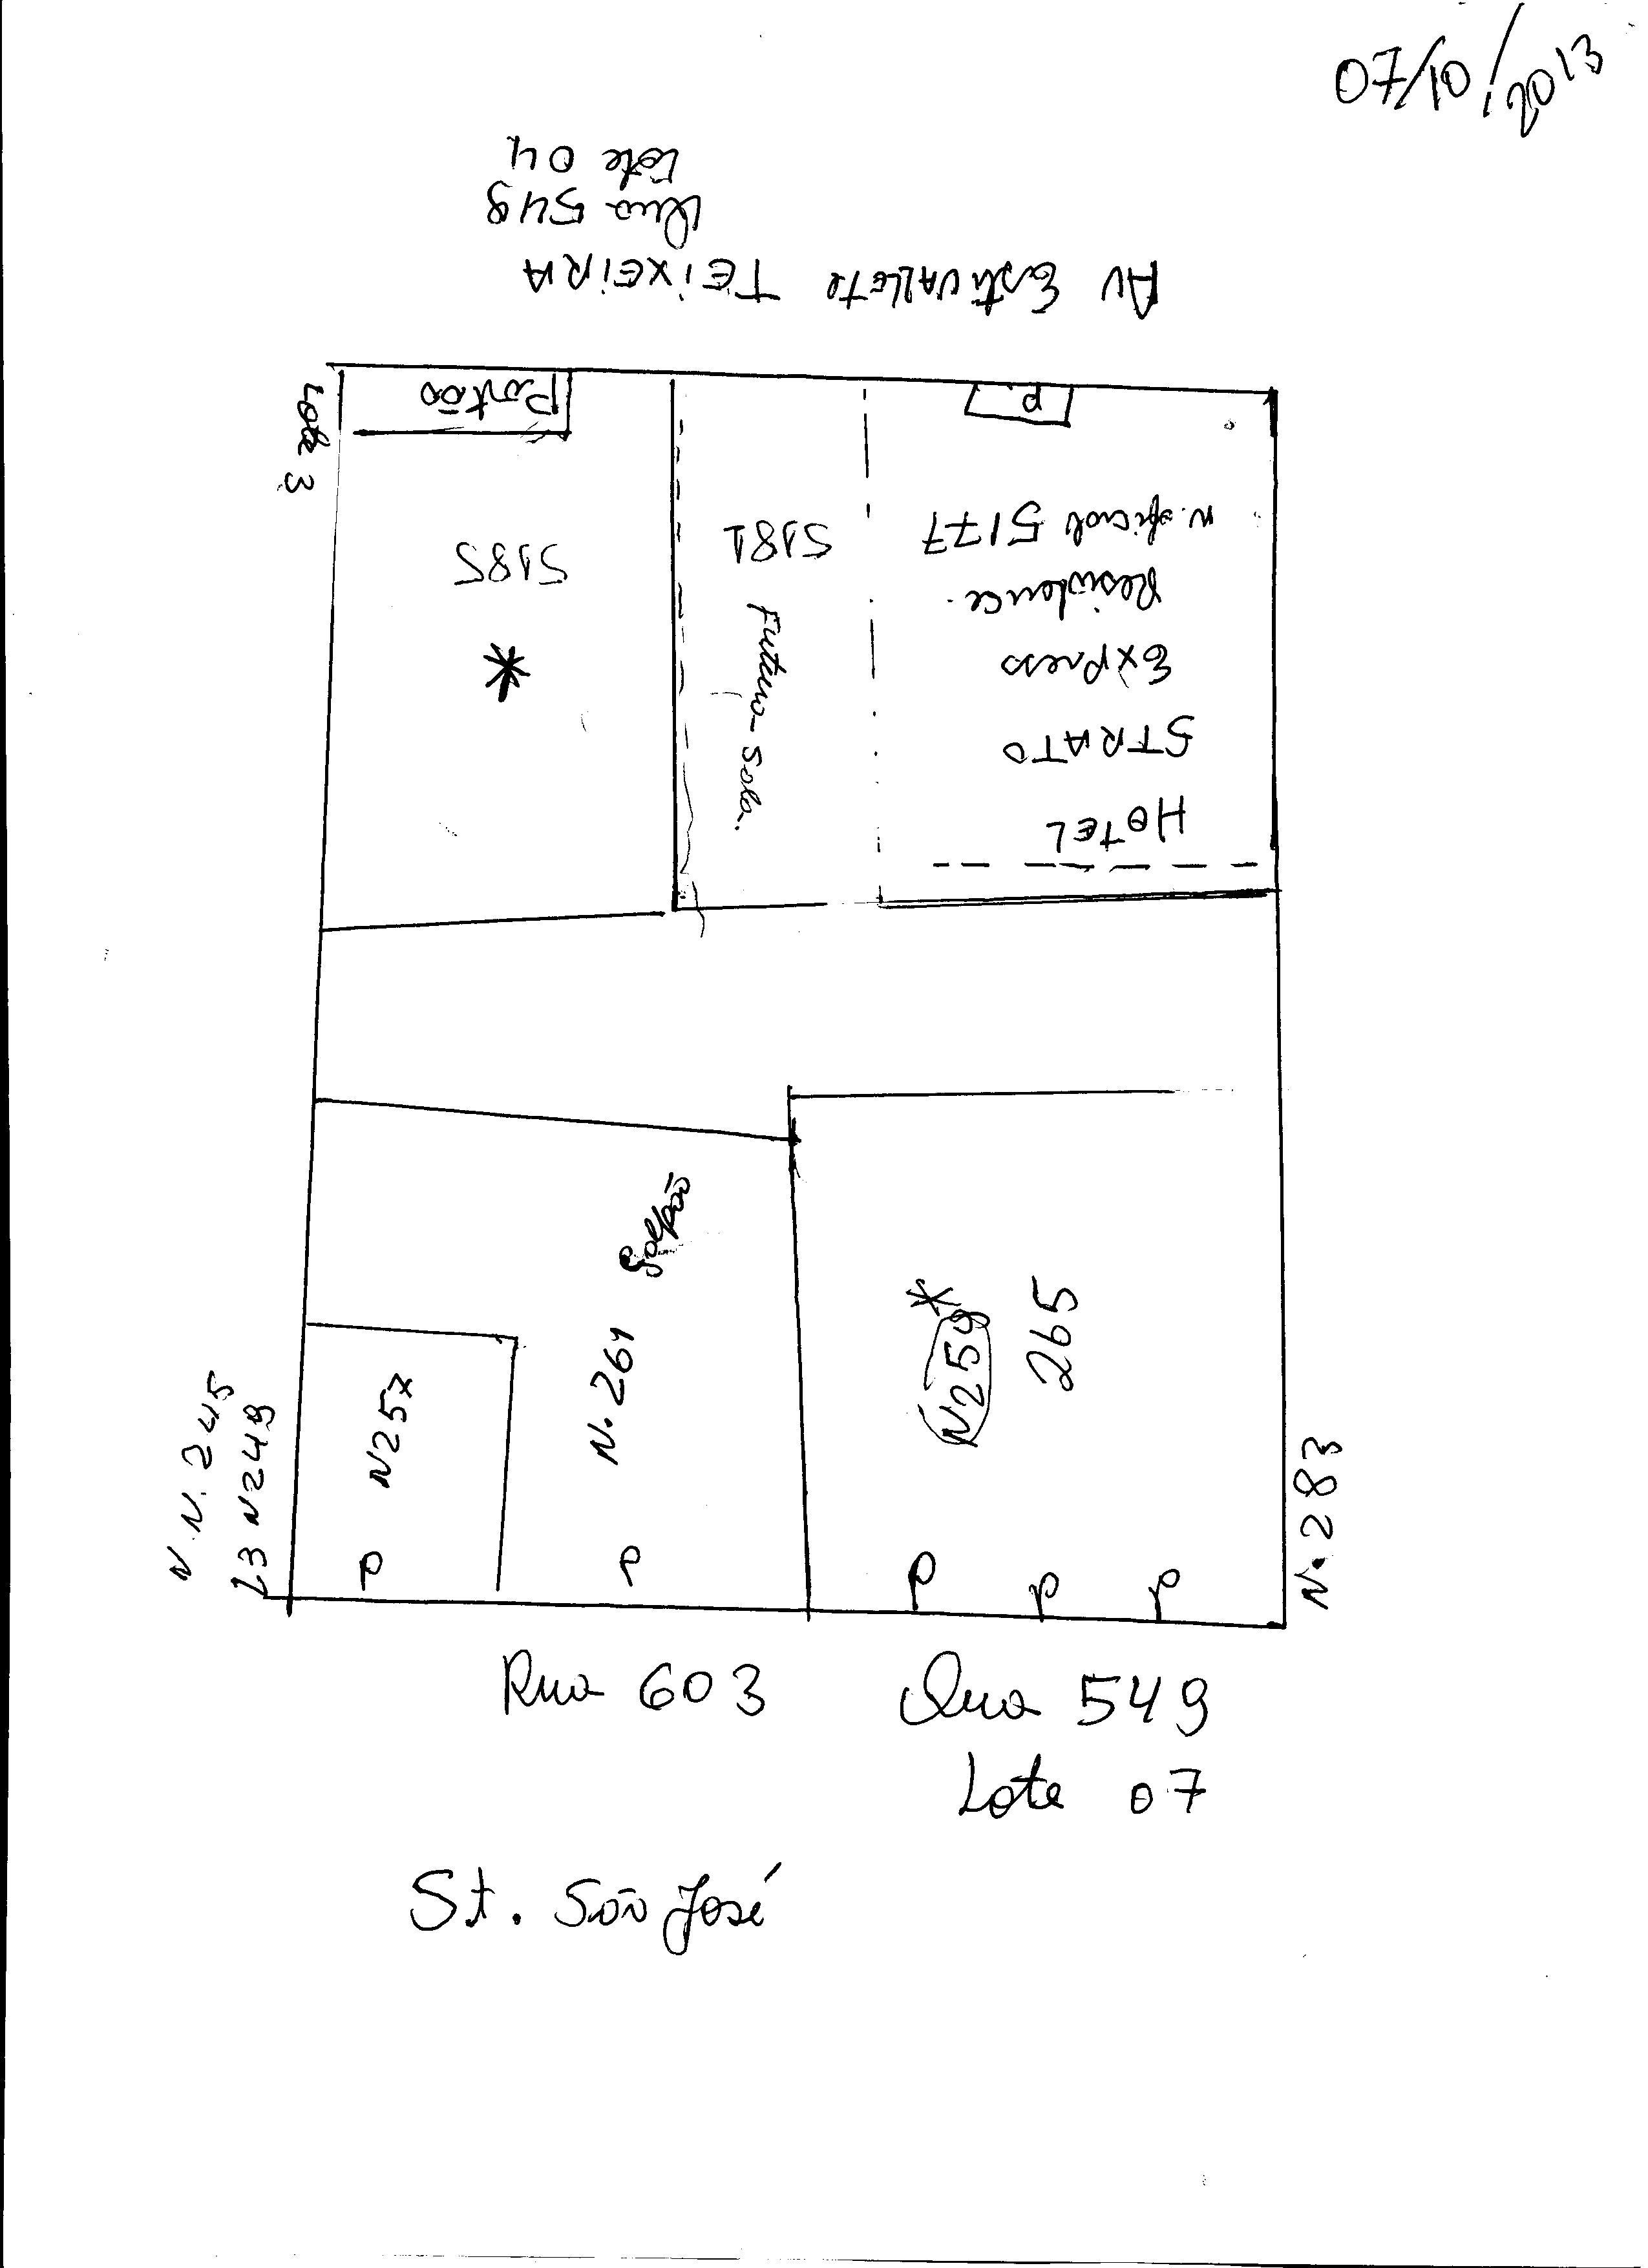 07/10/2013
Av Estivallete TEIXEIRA
Qua 549
Lote 04
Lote 3
Portão
P.
5185
*
5181
Futura Sala.
HOTEL
STRATO
Express
Residence.
n. oficial 5177
galpão
N. 261
N257
*
N259
265
N. N. 245
L3 N249
N. 283
P
P
P
P
P
Rua 603
Qua 549
Lote 07
St. São José